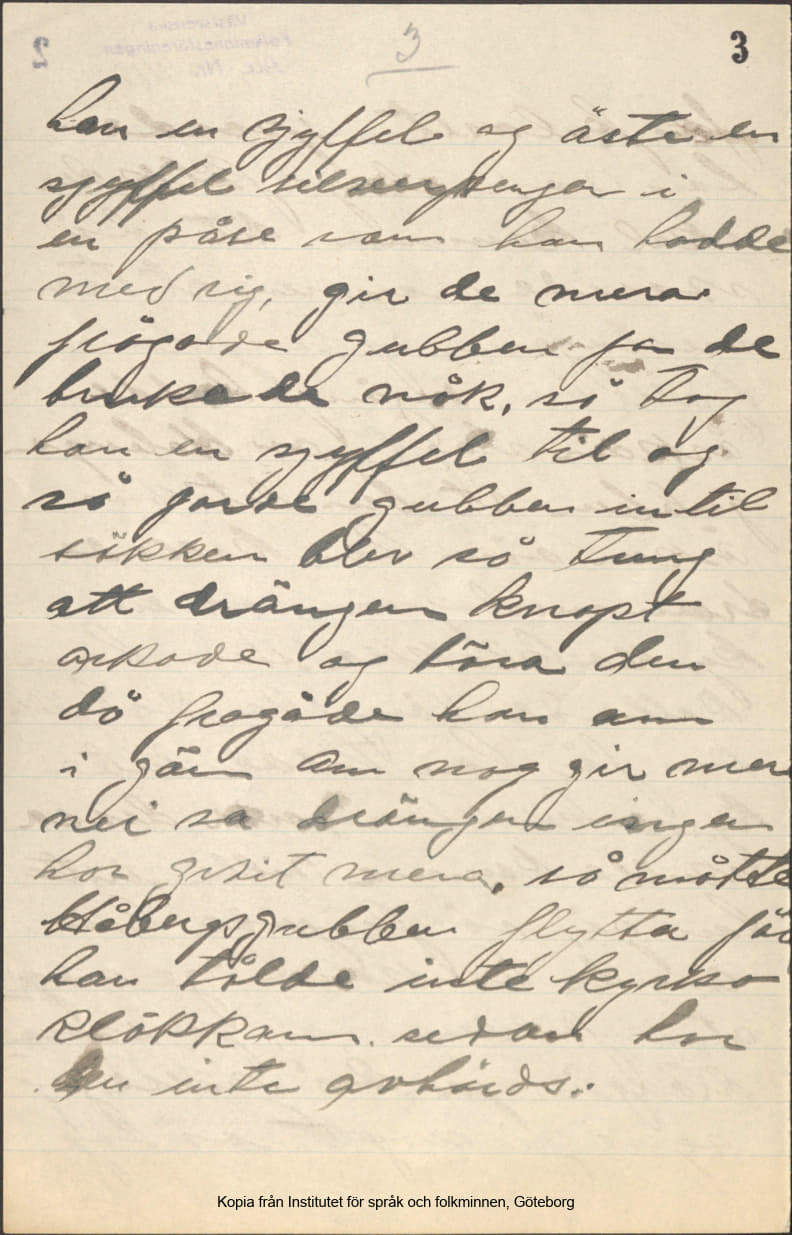 3
3
han en sjyffel og äste en
sjyffel silverpenger i
en påse som han hadde
med sig, gir de mera
frögade gubben ja de
brukade nåk, så tog
han en sjyffel til og
så jorde gubben intil
säkken blev så tung
att drängen knapt
orkade og böra den
då frogåde han om
i gän om nog gir mera
nei sa drängen ingen
har givit mera, så måtte
Håbergsgubben flytta för
han tålde inte kyrko
klökkam. sedan har
den inte avhörds.
Kopia från Institutet för språk och folkminnen, Göteborg